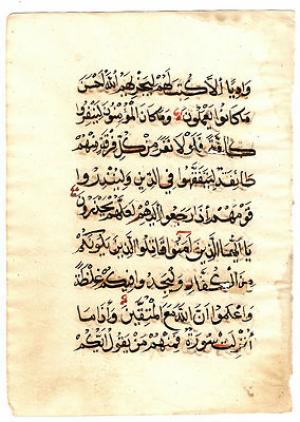 واديا الا كتب لهم ليجزيهم الله احسن
ما كانوا يعملون وما كان المؤمنون لينفروا
كافة فلولا نفر من كل فرقة منهم
طائفة ليتفقهوا في الدين ولينذروا
قومهم اذا رجعوا اليهم لعلهم يحذرون
يا ايها الذين امنوا قاتلوا الذين يلونكم
من الكفار وليجدوا فيكم غلظة
واعلموا ان الله مع المتقين واذا ما
انزلت سورة فمنهم من يقول ايكم